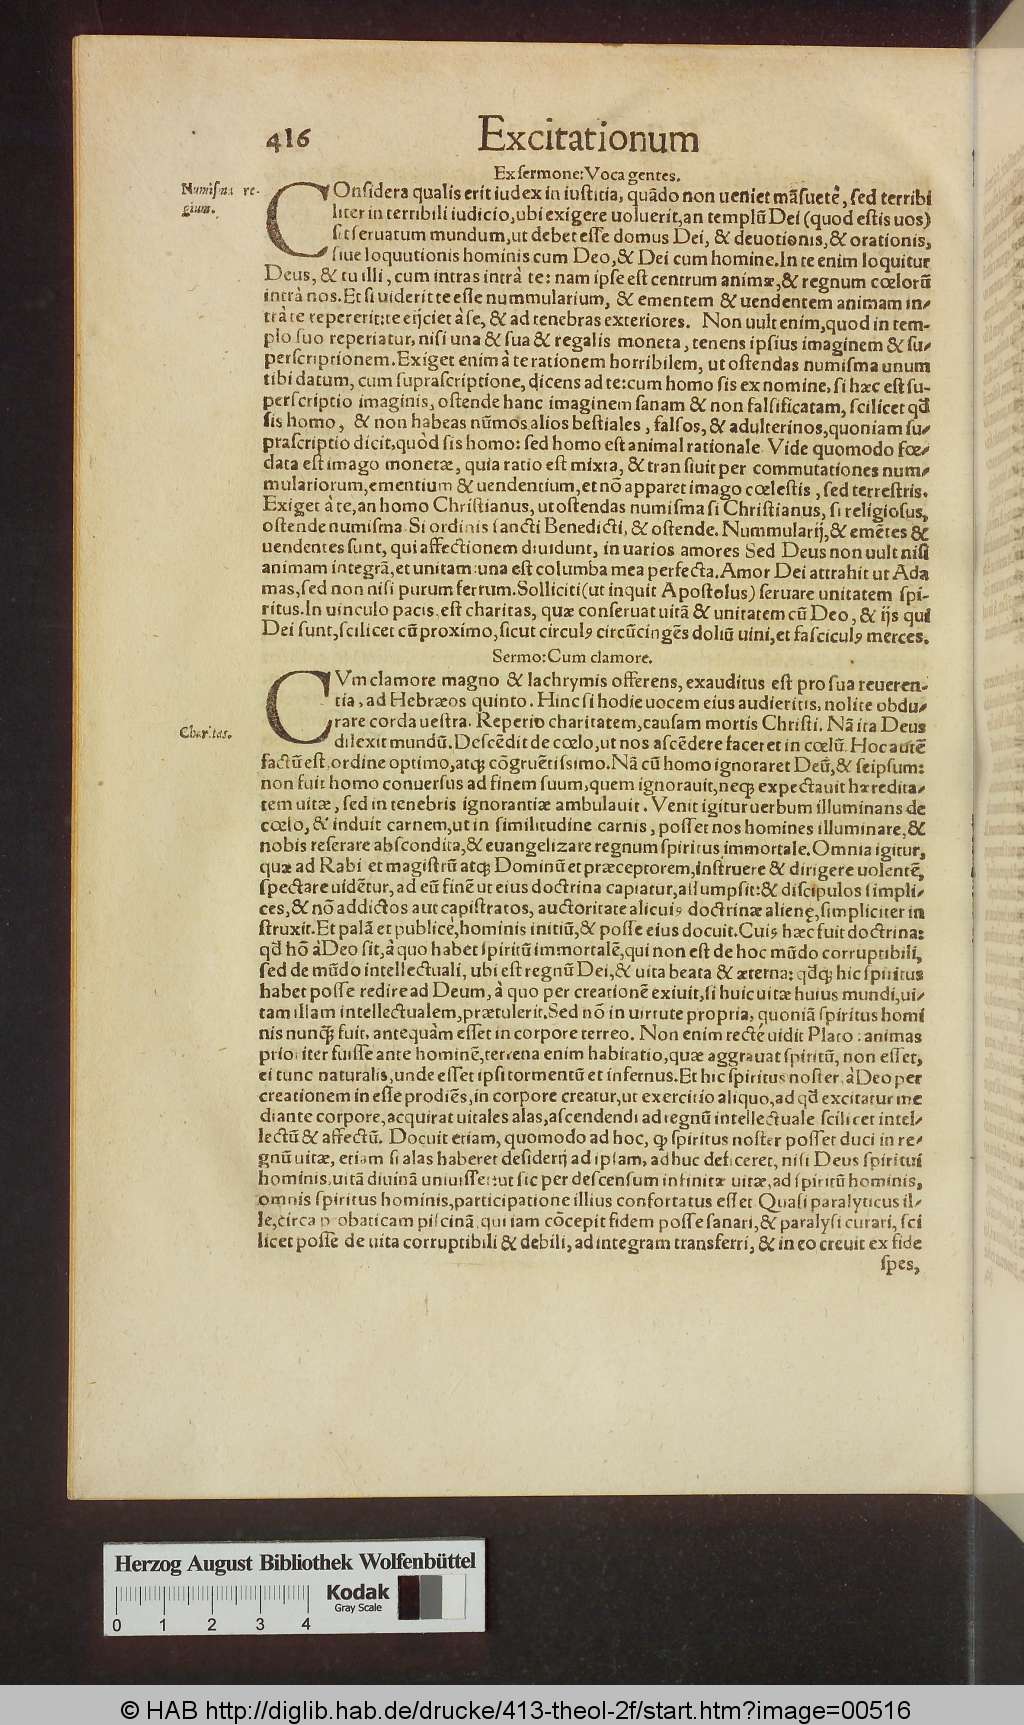 416 Excitationum
Ex sermone: Voca gentes.
Numisma re-
gium.
COnsidera qualis erit iudex in iusticia, quãdo non ueniet mãsuetè, sed terribi
liter in terribili iudicio, ubi exigere uoluerit, an templũ Dei (quod estis uos)
sit seruatum mundum, ut debet esse domus Dei, & deuotionis, & orationis,
siue loquutionis hominis cum Deo, & Dei cum homine. In te enim loquitur
Deus, & tu illi, cum intras intrà te: nam ipse est centrum animæ, & regnum cœlorũ
intrà nos. Et si uiderit te esse nummularium, & ementem & uendentem animam in-
trà te repererit: te eijciet à se, & ad tenebras exteriores. Non uult enim, quod in tem-
plo suo reperiatur, nisi una & sua & regalis moneta, tenens ipsius imaginem & su-
perscriptionem. Exiget enim à te rationem horribilem, ut ostendas numisma unum
tibi datum, cum suprascriptione, dicens ad te: cum homo sis ex nomine, si hæc est su-
perscriptio imaginis, ostende hanc imaginem sanam & non falsificatam, scilicet qđ
sis homo, & non habeas nũmos alios bestiales, falsos, & adulterinos, quoniam su-
prascriptio dicit, quòd sis homo: sed homo est animal rationale. Vide quomodo fœ-
data est imago monetæ, quia ratio est mixta, & transiuit per commutationes num-
mulariorum, ementium & uendentium, et nõ apparet imago cœlestis, sed terrestris.
Exiget à te, an homo Christianus, ut ostendas numisma si Christianus, si religiosus,
ostende numisma. Si ordinis sancti Benedicti, & ostende. Nummularij, & emẽtes &
uendentes sunt, qui affectionem diuidunt, in uarios amores. Sed Deus non uult nisi
animam integrã, et unitam: una est columba mea perfecta. Amor Dei attrahit ut Ada
mas, sed non nisi purum ferrum. Solliciti (ut inquit Apostolus) seruare unitatem spi-
ritus. In uinculo pacis, est charitas, quæ conseruat uitã & unitatem cũ Deo, & ijs qui
Dei sunt, scilicet cũ proximo, sicut circulꝰ circũcingẽs doliũ uini, et fasciculꝰ merces.
Sermo: Cum clamore.
Charitas.
CVm clamore magno & lachrymis offerens, exauditus est pro sua reueren-
tia, ad Hebræos quinto. Hinc si hodie uocem eius audieritis, nolite obdu-
rare corda uestra. Reperio charitatem, causam mortis Christi. Nã ita Deus
dilexit mundũ. Descẽdit de cœlo, ut nos ascẽdere faceret in cœlũ. Hoc autẽ
factũ est, ordine optimo, atqꝫ cõgruẽtissimo. Nã cũ homo ignoraret Deũ, & seipsum:
non fuit homo conuersus ad finem suum, quem ignorauit, neqꝫ expectauit hæredita-
tem uitæ, sed in tenebris ignorantiæ ambulauit. Venit igitur uerbum illuminans de
cœlo, & induit carnem, ut in similitudine carnis, posset nos homines illuminare, &
nobis reserare abscondita, & euangelizare regnum spiritus immortale. Omnia igitur,
quæ ad Rabi et magistrũ atqꝫ Dominũ et præceptorem, instruere & dirigere uolentẽ,
spectare uidẽtur, ad eũ finẽ ut eius doctrina capiatur, assumpsit: & discipulos simpli-
ces, & nõ addictos aut capistratos, auctoritate alicuiꝰ doctrinæ alienę, simpliciter in
struxit. Et palã et publicè, hominis initiũ, & posse eius docuit. Cuiꝰ hæc fuit doctrina:
qđ hõ à Deo sit, à quo habet spiritũ immortalẽ, qui non est de hoc mũdo corruptibili,
sed de mũdo intellectuali, ubi est regnũ Dei, & uita beata & æterna: qđqꝫ hic spiritus
habet posse redire ad Deum, à quo per creationẽ exiuit, si huic uitæ huius mundi, ui-
tam illam intellectualem, prætulerit. Sed nõ in uirtute propria, quoniã spiritus homi
nis nunqꝫ fuit, antequàm esset in corpore terreo. Non enim rectè uidit Plato: animas
prioriter fuisse ante hominẽ, terrena enim habitatio, quæ aggrauat spiritũ, non esset,
ei tunc naturalis, unde esset ipsi tormentũ et infernus. Et hic spiritus noster, à Deo per
creationem in esse prodiẽs, in corpore creatur, ut exercitio aliquo, ad qđ excitatur me
diante corpore, acquirat uitales alas, ascendendi ad regnũ intellectuale scilicet intel-
lectũ & affectũ. Docuit etiam, quomodo ad hoc, ꝙ spiritus noster posset duci in re-
gnũ uitæ, etiam si alas haberet desiderij ad ipsam, adhuc deficeret, nisi Deus spiritui
hominis, uitã diuinã uniuisset: ut sic per descensum infinitæ uitæ, ad spiritũ hominis,
omnis spiritus hominis, participatione illius confortatus esset. Quasi paralyticus il-
le, circa probaticam piscinã, qui iam cõcepit fidem posse sanari, & paralysi curari, sci
licet posse de uita corruptibili & debili, ad integram transferri, & in eo creuit ex fide
spes,
Herzog August Bibliothek Wolfenbüttel
Kodak
Gray Scale
0 1 2 3 4
© HAB http://diglib.hab.de/drucke/413-theol-2f/start.htm?image=00516